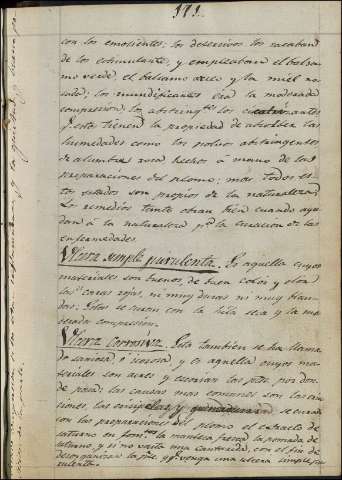 171.
con los emolientes; los desecivos los sacaban
de los estimulantes, y empleaban el balsa-
mo verde, el balsamo arceo y la miel ro-
sada; los mundificantes era la moderada
compresion; los abstring.tes los cicatrizantes
q.e estos tienen la propiedad de absolver las
humedades como los polvos abstringentes
de alumbre, rosa hechos á mano de las
preparaciones del plomo; mas todos es-
tos estados son propios de la naturaleza,
los remedios tanto obran bien cuando ayu-
dan á la naturaleza p.a la curacion de las
enfermedades.
Ulcera simple purulenta. Es aquella cuyos
materiales son buenos de buen color y olor
las carnes rojas, ni muy duras ni muy blan-
das; Estas se curan con la hila seca y la mo-
derada compresion.
Ulcera Corrosiva. Esta tambien se ha llama-
do saniosa é icorosa, y es aquella cuyos ma-
teriales son acres y escorian las ptes. por don-
de pasa; las causas mas comunes son las
ciones, las y se curan
con las preparaciones del plomo el extracto de
saturno en la manteca fresca la pomada de
saturno, y si no basta una cantarida, con el fin de
desorganizar la p.te y q.e venga una ulcera simple pu-
rulenta.